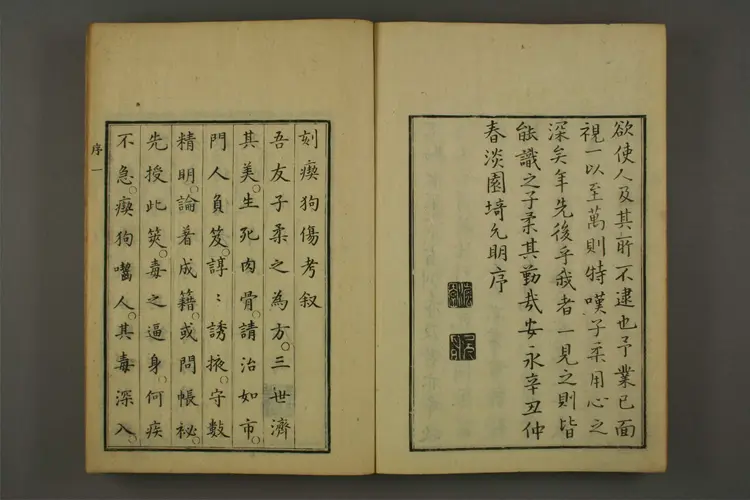 欲使人及其所不逮也予業已面
視一以至萬則特嘆子柔用心之
深矣年先後乎我者一見之則皆
能識之子柔其勤哉安永辛丑仲
春淡園埼允明序
刻瘈狗傷考叙
吾友子柔之為方。三世濟
其美。生死肉骨。請治如市。
門人負笈。諄〻誘掖。守數
精明。論著成籍。或問帳秘。
先授此筴。毒之逼身。何疾
不急。瘈狗囓人。其毒深入。
序一